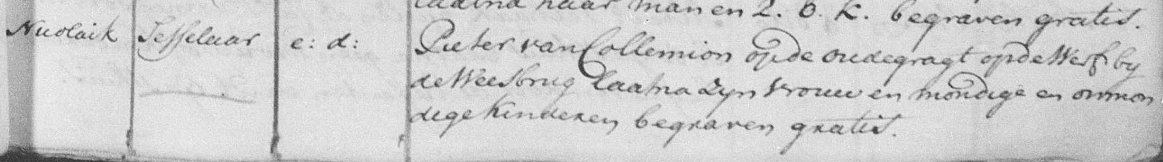 laatna haar man en 2. o. k. begraven gratis.
Nicolaik Tesselaar e: d: Pieter van Collemion op de oudegragt op de Werf by
de Weesbrug laatna zyn vrouw en mondige en onmon
dege kinderen begraven gratis.